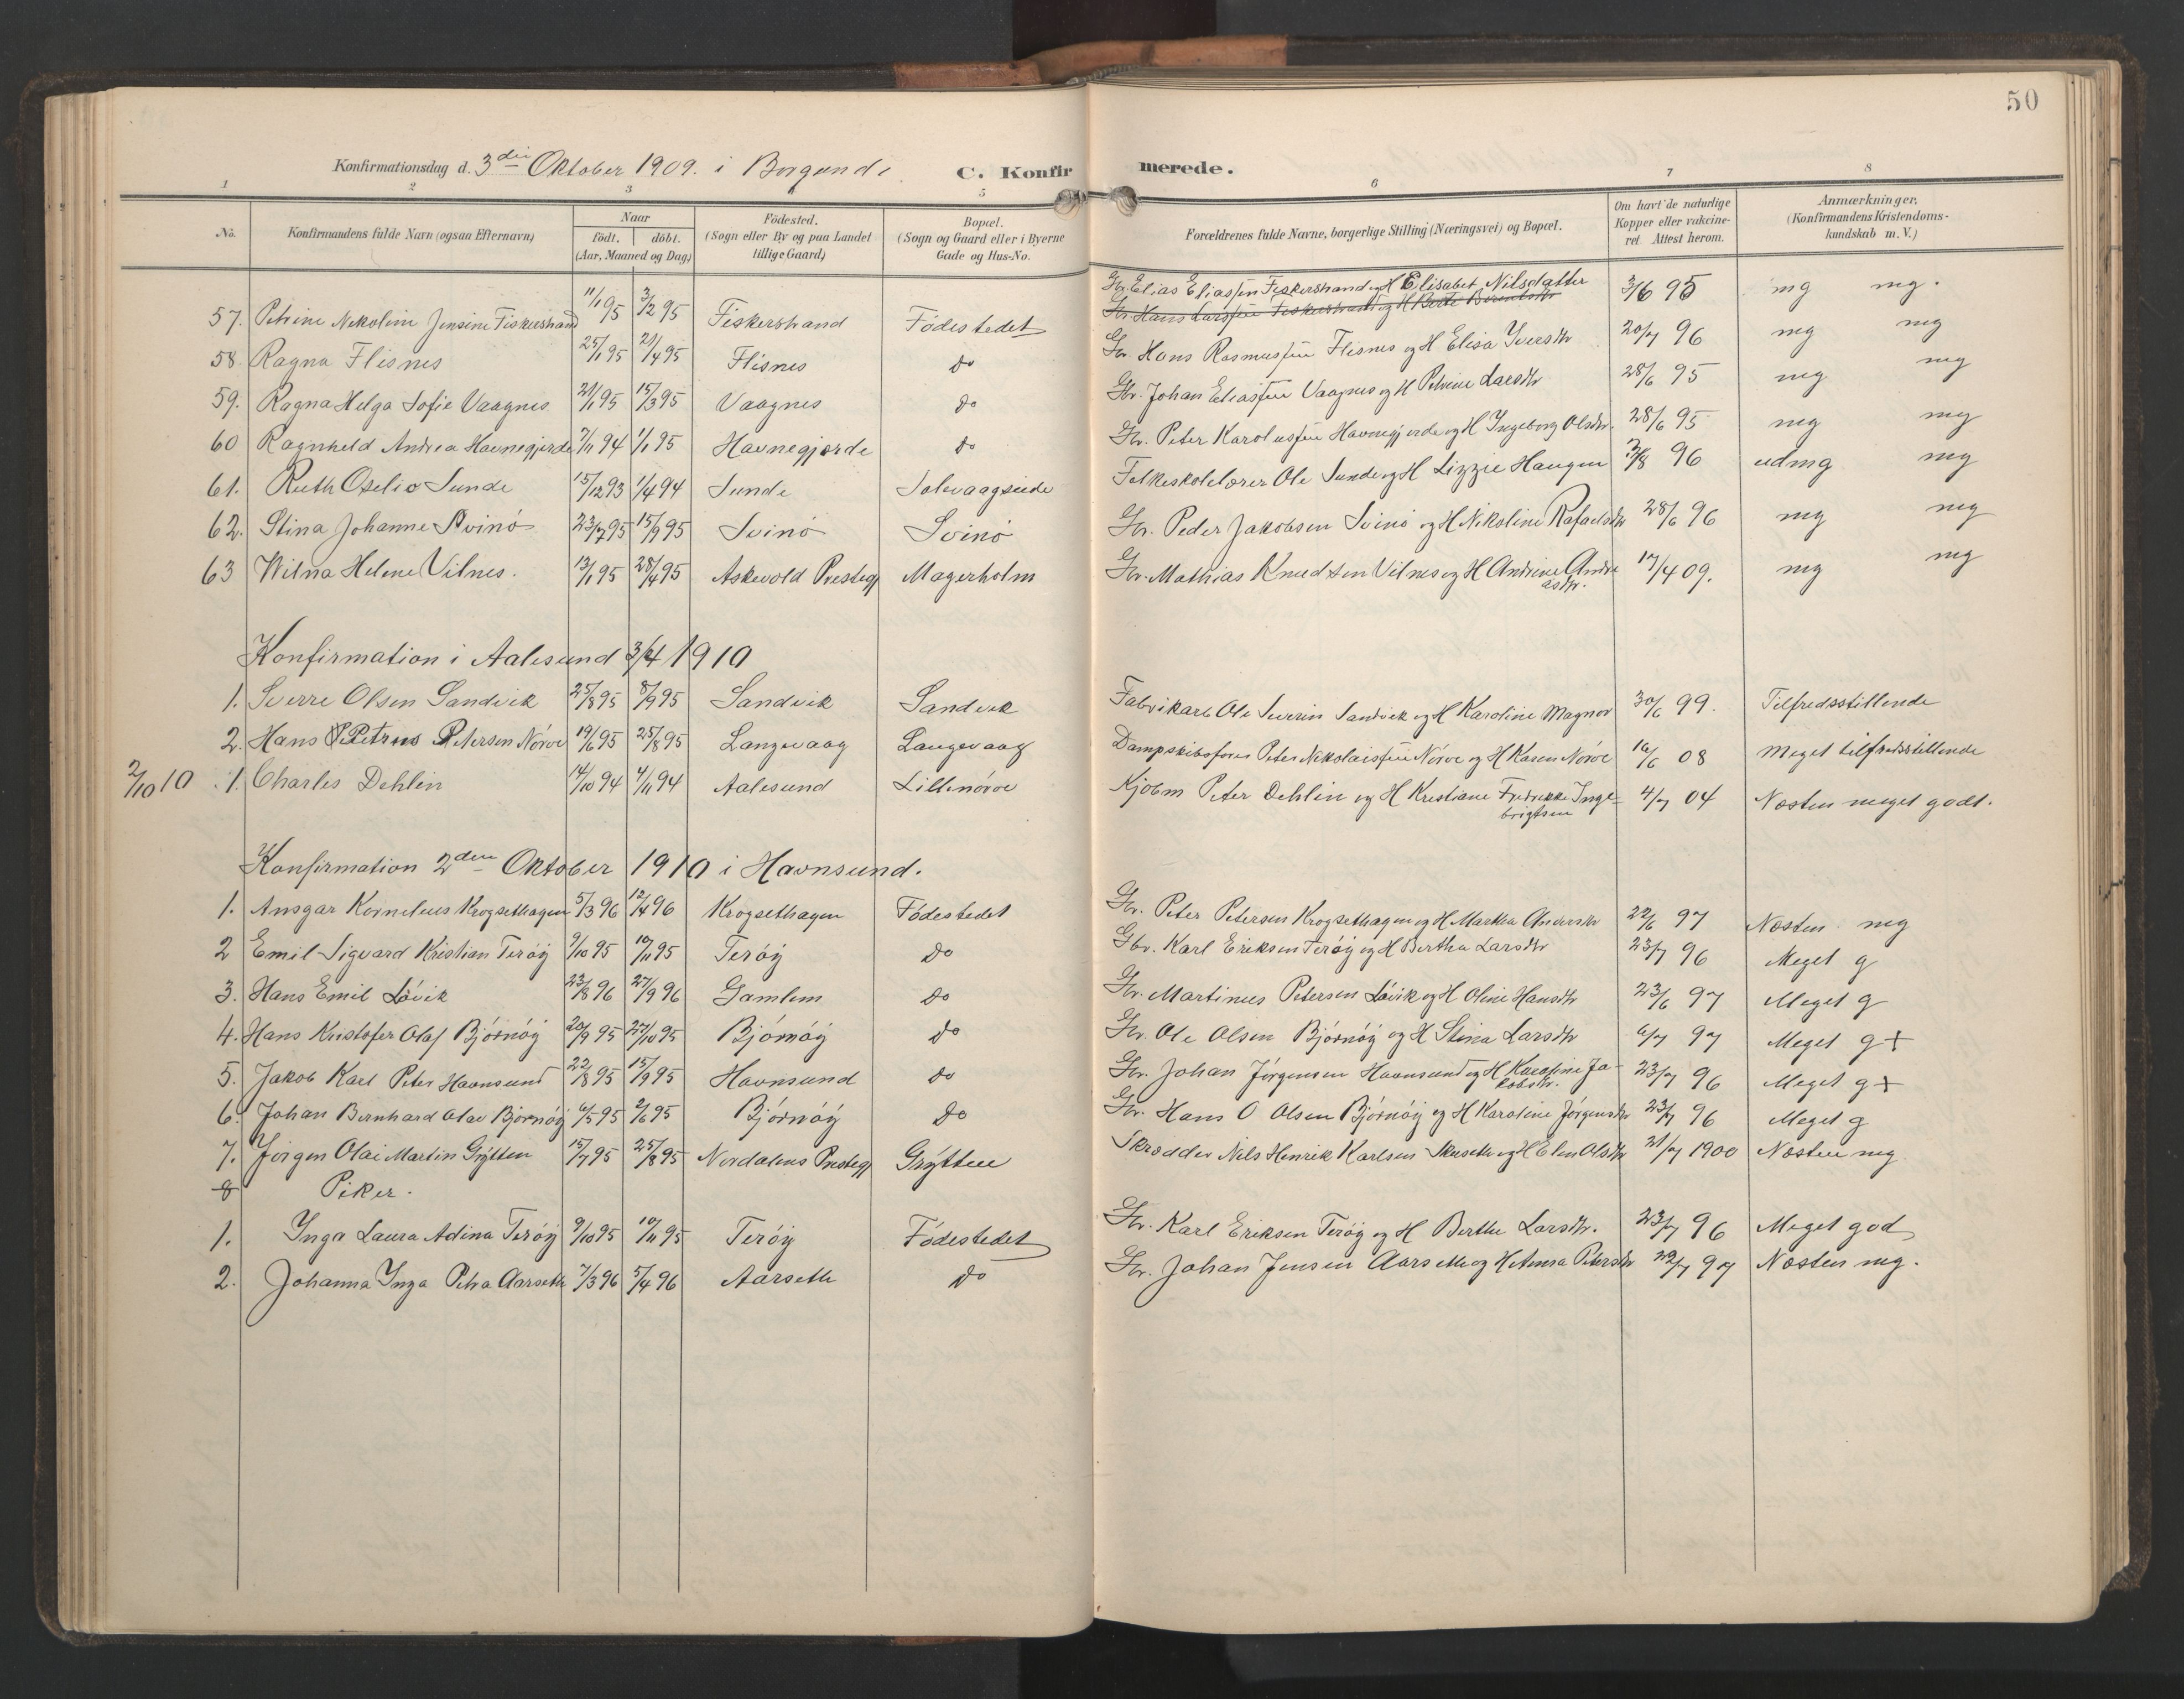 50
Konfirmationsdag d. 3die Oktober 1909. i Borgund. C. Konfirmerede.
1 2 3 5 6 7 8
No. Konfirmandens fulde Navn (ogsaa Efternavn) Naar født. døbt. (Aar, Maaned og Dag) Fødested. (Sogn eller By og paa Landet tillige Gaard) Bopæl. (Sogn og Gaard eller i Byerne Gade og Hus-No. Forældrenes fulde Navne, borgerlige Stilling (Næringsvei) og Bopæl. Om havt de naturlige Kopper eller vakcineret. Attest herom. Anmærkninger. (Konfirmandens Kristendomskundskab m. V.)
57. Petrine Nekoline Jensine Fiskerstrand 11/1 95 3/2 95 Fiskerstrand Fødestedet Gbr. Elias Eliassen Fiskerstrand og H Elisabet Nilsdatter 3/6 95 mg mg.
Gbr. Hans Larssen Fiskerstrand og H Berte
58 Ragna Flisnes 25/1 95 21/4 95 Flisnes do Gbr. Hans Rasmussen Flisnes og H Elisa Iversdtr 20/7 96 mg mg
59. Ragna Helga Sofie Vaagnes 21/1 95 15/3 95 Vaagnes do Gbr. Johan Eliassen Vaagnes og H Petrine Larsdtr 28/6 95 mg mg
60 Ragnheld Andrea Havnegjerde 7/11 94 1/1 95 Havnegjærde do Gbr. Peter Karolussen Havnegjerde og H Ingeborg Olsdtr. 28/6 95 mg mg
61. Ruth Oselio Sunde 15/12 93 1/4 94 Sunde Solevaagseide Folkeskolelærer Ole Sunde og H Lizzie Haugen 96 udmg mg
62. Stina Johanne Svinø 23/7 95 15/9 95 Svinø Svinø Gbr. Peder Jakobsen Svinø og H Nikoline Rafaelsdtr 28/6 96 mg mg
63 Wilna Helene Vilnes. 13/1 95 28/4 95 Askevold Prestegj Magerholm Gbr. Mathias Knudsen Vilnes og H Andrine Andreasdtr. 17/4 09. mg mg
Konfirmation i Aalesund 3/4 1910
1. Sverre Olsen Sandvik 25/8 95 8/9 95 Sandvik Sandvik Fabrikarb Ole Severin Sandvik og H Karoline Magnor 30/6 99. Tilfredsstillende
2. Hans Petrus Petersen Nørve 19/6 95 25/8 95 Langevaag Langevaag Dampskibsfører Peter Nikolaissen Nørve og H Karen Nørve 16/6 08 Meget tilfredsstillende
2/10 10 1. Charles Dehlin 14/10 94 4/11 94 Aalesund Lillenørve Kjøbm Peter Dehlin og H Kristiane Fredrikke Ingebrigtsen 4/7 04 Næsten meget godt.
Konfirmation 2den Oktober 1910 i Havnsund.
1. Ansgar Kornelius Krogsethagen 5/3 96 12/4 96 Krogsethagen Fødestedet Gbr. Peter Petersen Krogsethagen og H Martha Andersdtr 22/6 97 Næsten mg
2 Emil Sigvard Kristian Terøy 9/10 95 10/11 95 Terøy do Gbr. Karl Eriksen Terøy og H Bertha Larsdtr 23/7 96 Meget g
3. Hans Emil Løvik 23/8 96 27/9 96 Gamlem do Gbr. Martinus Petersen Løvik og H Oline Hansdtr 23/6 97 Meget g
4. Hans Kristofer Olaf Bjørnøy 20/9 95 27/10 95 Bjørnøy do Gbr. Ole Olsen Bjørnøy og H Stina Larsdtr 6/7 97 Meget g+
5. Jakob Karl Peter Havnsund 22/8 95 15/9 95 Havnsund do Gbr. Johan Jørgensen Havnsund og H Karoline Jakobsdtr. 23/7 96 Meget g+
6. Johan Bernhard Olav Bjørnøy 6/5 95 2/6 95 Bjørnøy do Gbr. Hans O Olsen Bjørnøy og H Karoline Jørgensdtr 23/7 96 Meget g
7. Jørgen Olai Martin Grytten 15/7 95 25/8 95 Nordalens Prestegj Grytten Skrædder Nils Henrik Karlsen og H Elen Olsdtr 21/7 1900 Næsten mg
8 Piker.
1. Inga Laura Adina Terøy 9/10 95 10/11 95 Terøy Fødestedet Gbr. Karl Eriksen Terøy og H Berthe Larsdtr. 23/7 96 Meget god
2. Johanna Inga Petra Aarseth 7/3 96 5/4 96 Aarseth do Gbr. Johan Jensen Aarseth og H Anna Petersdtr 22/7 97 Næsten mg.